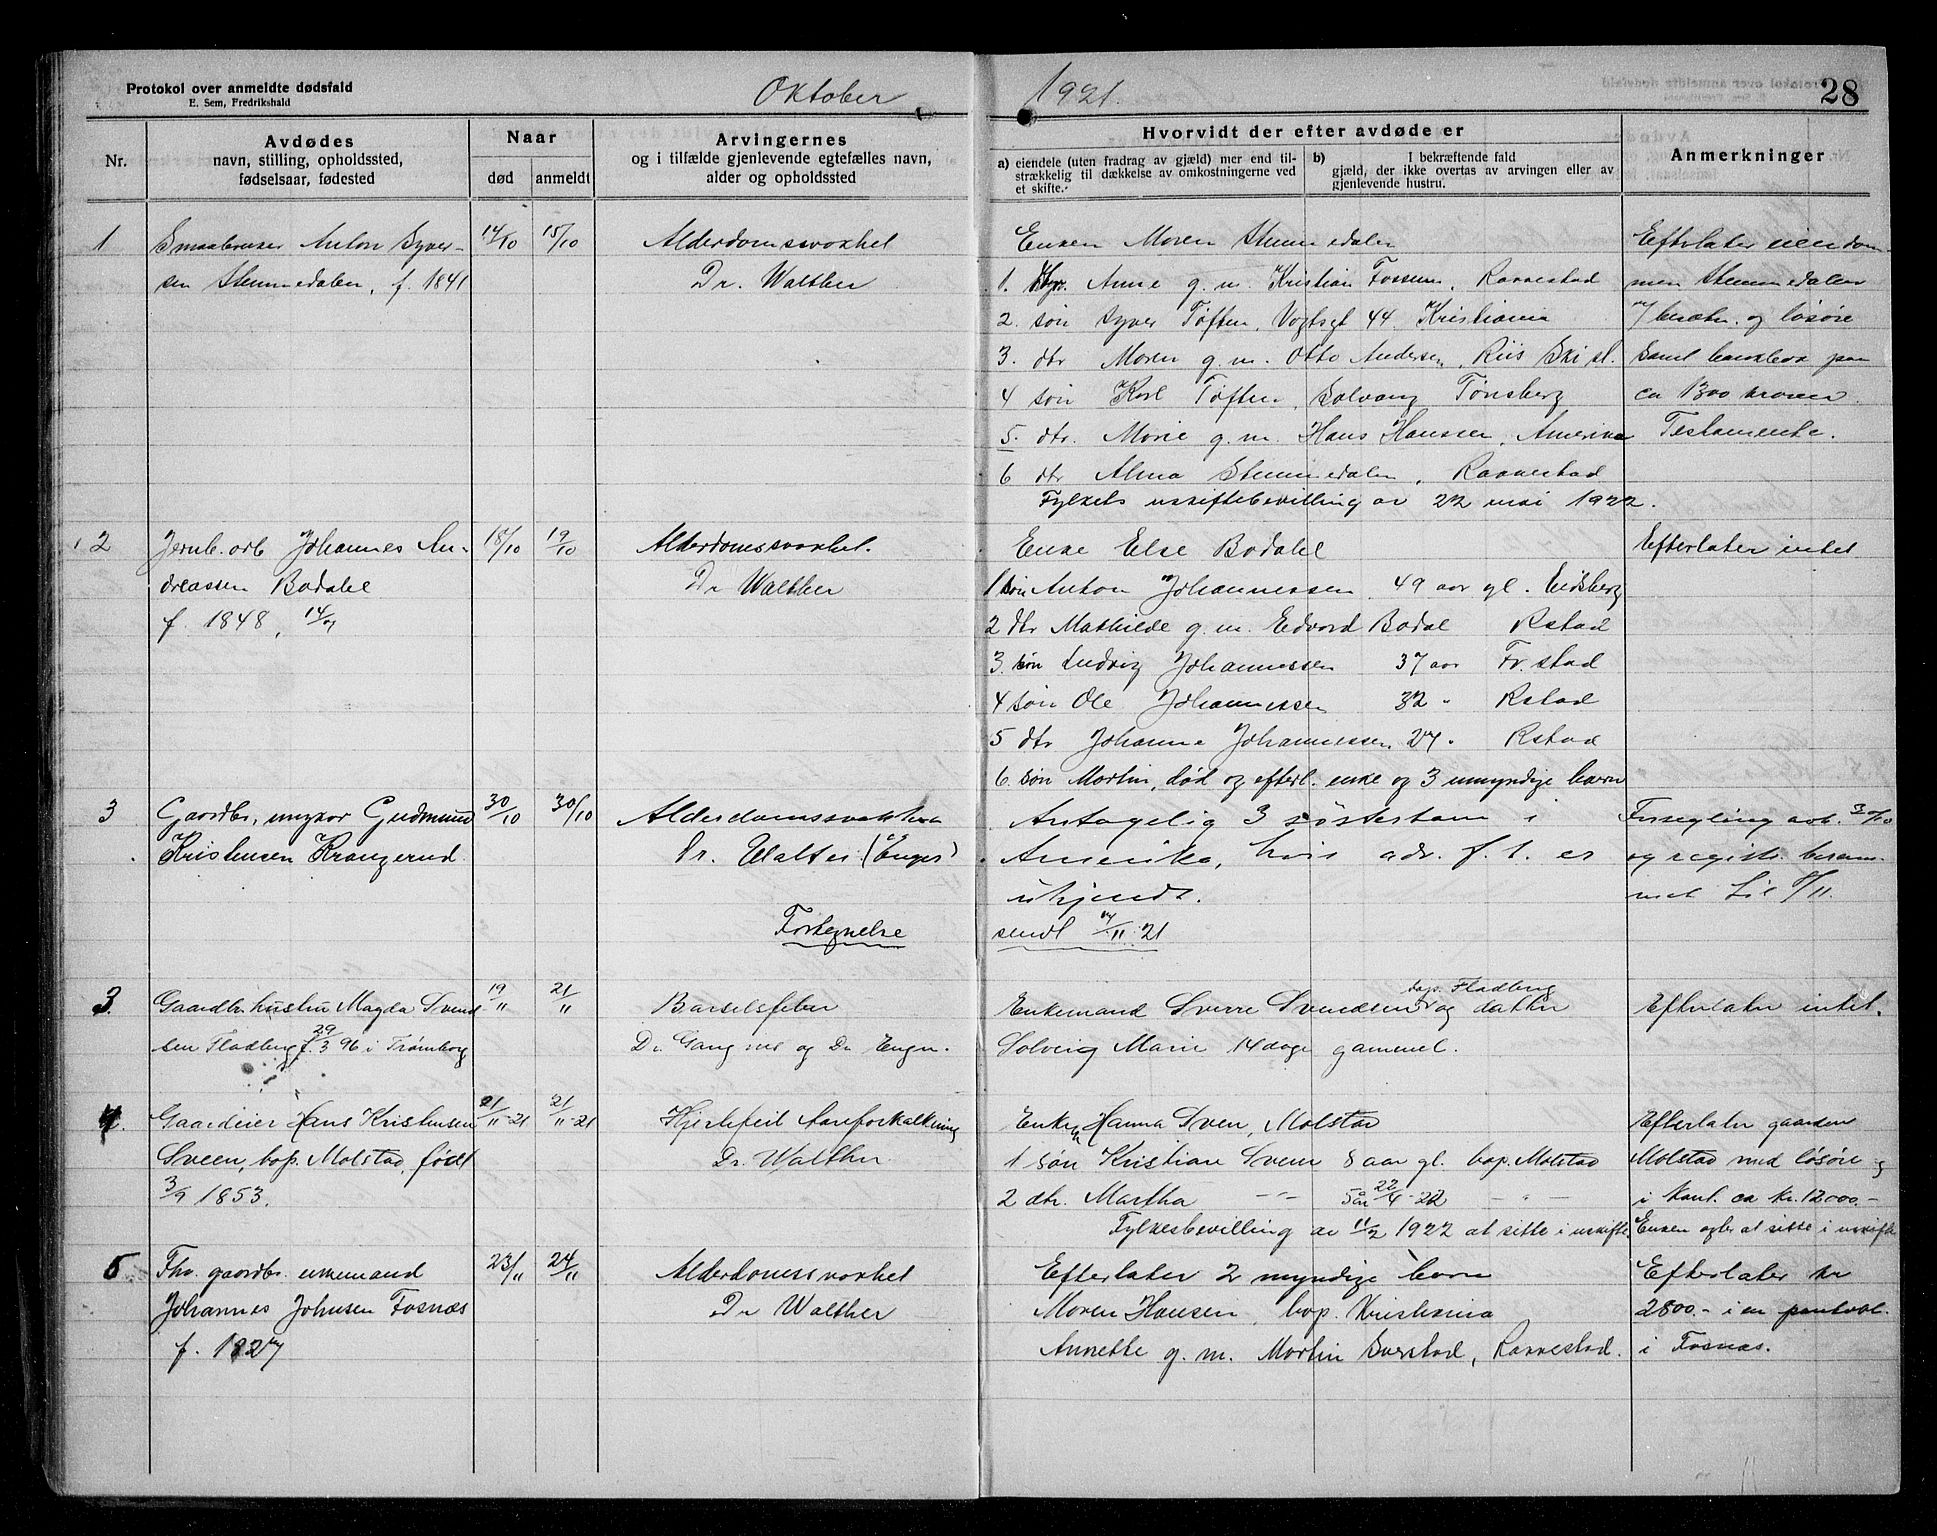 Protokol over anmeldte dødsfald
E. Sem, Fredrikshald
Oktober 1921.
28
Nr.
Avdødes
navn, stilling, opholdssted,
fødselsaar, fødested
Naar
død
anmeldt
Arvingernes
og i tilfælde gjenlevende egtefælles navn,
alder og opholdssted
Hvorvidt der efter avdøde er
a) eiendele (uten fradrag av gjæld) mer end til-
strækkelig til dækkelse av omkostningerne ved
et skifte.
b) I bekræftende fald
gjæld, der ikke overtas av arvingen eller av
gjenlevende hustru.
Anmerkninger
1
Smaabruker Anton Syver-
sen Stemmedalen, f. 1841
14/10
15/10
Alderdomssvakhet
Dr. Walther
Enken Maren Stemmedalen
1. Dtr. Anne g. m. Kristian Fossum, Rakkestad
2. søn Syver Tøften, Vogtsgt 44. Kristiania
3. dtr Maren g. m. Otto Andersen, Riis Ski st.
4 søn Karl Tøften, Solvang Tønsberg
5. dtr. Marie g. m. Hans Hansen, Amerika
6 dtr Alma Stemmedalen, Rakkestad
Fylkets uskiftebevilling av 22 mai 1922.
Efterlater eiendom-
men Stemmedalen
m/ besætn. og løsøre
samt bankbok paa
ca 1300 kroner.
Testamente.
2
Jernb. arb Johannes An-
dreassen Bodalel
f. 1848, 14/7
18/10
19/10
Alderdomssvakhet.
Dr Walther
Enke Else Bodalel
1 søn Anton Johannessen, 49 aar gl. Eidsberg
2 dtr Mathilde g. m. Edvard Bodal Rstad
3. søn Ludvig Johannessen 37 aar Fr. stad
4 søn Ole Johannessen 32 " Rstad
5 dtr Johanne Johannessen 27 " Rstad
6. søn Martin, død og efterl. enke og 3 umyndige barn
Efterlater intet
3
Gaardbr, ungkar Gudmund
Kristensen Krangerud.
30/10
30/10
Alderdomssvakhet
Dr. Walter (Enger)
Fortegnelse
Antagelig 3 søsterbarn i
Amerika, hvis adr. f. t. er
ukjendt.
sendt 17/11 21
Forsegling avh. 30/10
og registr. beram-
met til 8/11.
3.
Gaardbr. hustru Magda Svend
sen Fladberg f. 29/3 96 i Trømborg
19/11
21/11
Barselsfeber
Dr. Gangnes og Dr Enger.
Enkemand Sverre Svendsen bop. Fladberg og datter
Solveig Marie 14 dage gammel.
Efterlater intet.
4.
Gaardeier Hans Kristensen
Sveen, bop. Molstad, født
3/9 1853.
21/11-21
21/11-21
Hjertefeil Aareforkalkning
Dr. Walther
Enken Hanna Sven, Molstad
1 søn Kristian Sveen 8 aar gl. bop. Molstad
2 dtr. Martha —"— 5 år 22/4-22 —"—
Fylkesbevilling av 11/2 1922 at sitte i uskifte.
Efterlater gaarden
Molstad med løsøre og
i kont. ca kr. 12000.-
Enken agter at sitte i uskifte
5
Fhv. gaardbr. enkemand
Johannes Johnsen Fosnæs
f. 1827
23/11
24/11
Alderdomssvakhet
Dr Walther
Efterlater 2 myndige barn
Maren Hansen, bop. Kristiania
Annette g. m. Martin Sverstad, Rakkestad.
Efterlater kr
2800.- i en pantobl.
i Fosnæs.